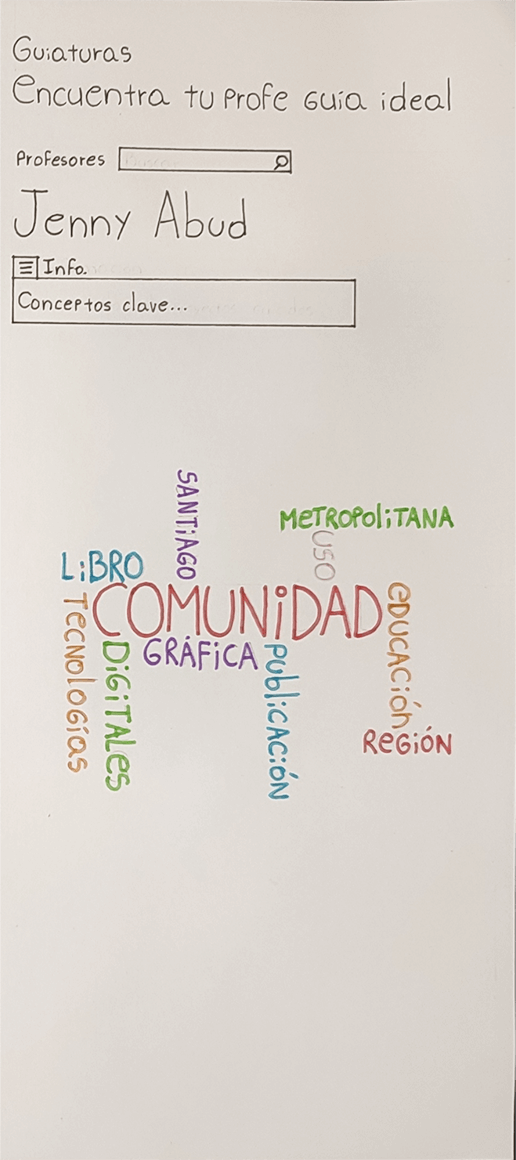 Guiaturas
Encuentra tu profe guía ideal
Profesores
Jenny Abud
Info.
Conceptos clave...
SANTIAGO
METROPOLITANA
USO
LIBRO
COMUNIDAD
EDUCACIÓN
TECNOLOGÍAS
DIGITALES
GRÁFICA
PUBLICACIÓN
REGIÓN